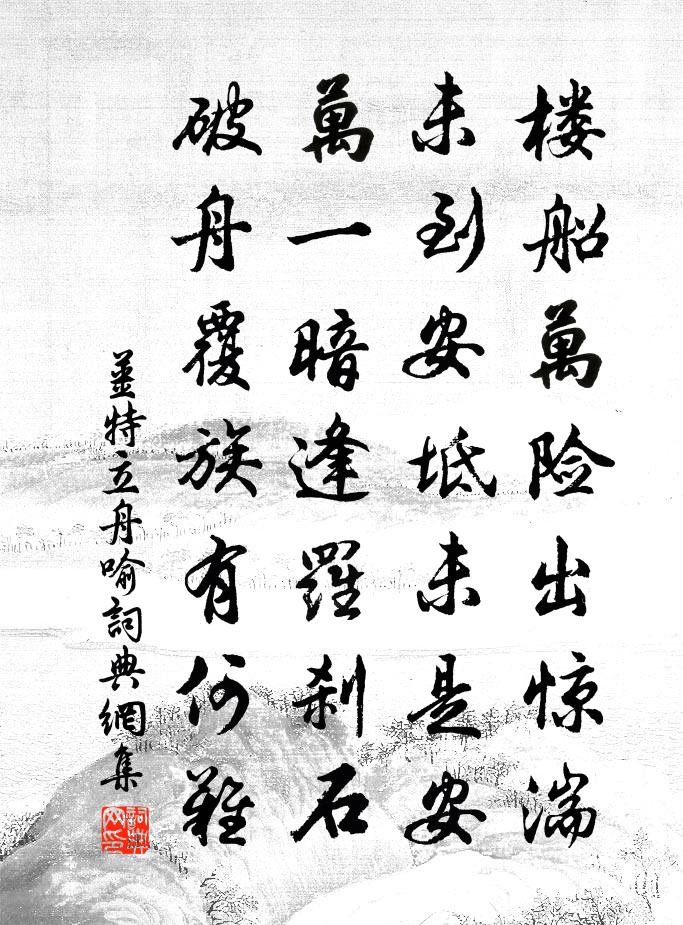 楼船萬险出惊湍
未到安坻未是安
萬一暗逢羅刹石
破舟覆族有何難
姜特立舟喻詞典網集
詞典网印